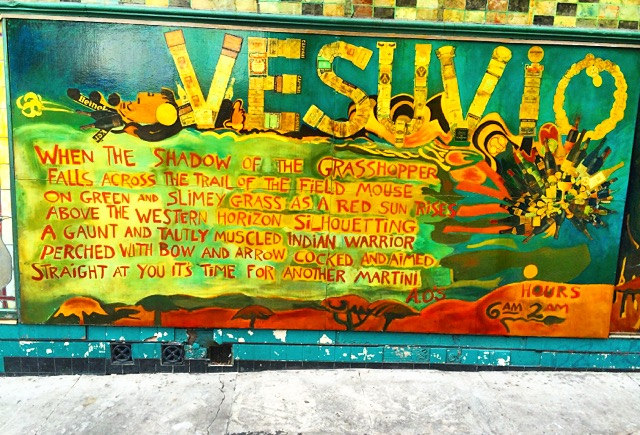 VESUVIO
WHEN THE SHADOW OF THE GRASSHOPPER
FALLS ACROSS THE TRAIL OF THE FIELD MOUSE
ON GREEN AND SLIMEY GRASS AS A RED SUN RISES
ABOVE THE WESTERN HORIZON SILHOUETTING
A GAUNT AND TAUTLY MUSCLED INDIAN WARRIOR
PERCHED WITH BOW AND ARROW COCKED AND AIMED
STRAIGHT AT YOU IT'S TIME FOR ANOTHER MARTINI
HOURS
6AM 2AM